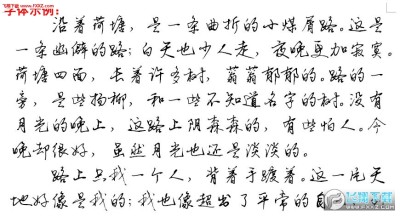 字体示例:
www.fxxz.com
沿着荷塘，是一条曲折的小煤屑路。这是
一条幽僻的路；白天也少人走，夜晚更加寂寞。
荷塘四面，长着许多树，蓊蓊郁郁的。路的一
旁，是些杨柳，和一些不知道名字的树。没有
月光的晚上，这路上阴森森的，有些怕人。今
晚却很好，虽然月光也还是淡淡的。
路上只我一个人，背着手踱着。这一片天
地好像是我的；我也像超出了平常的自